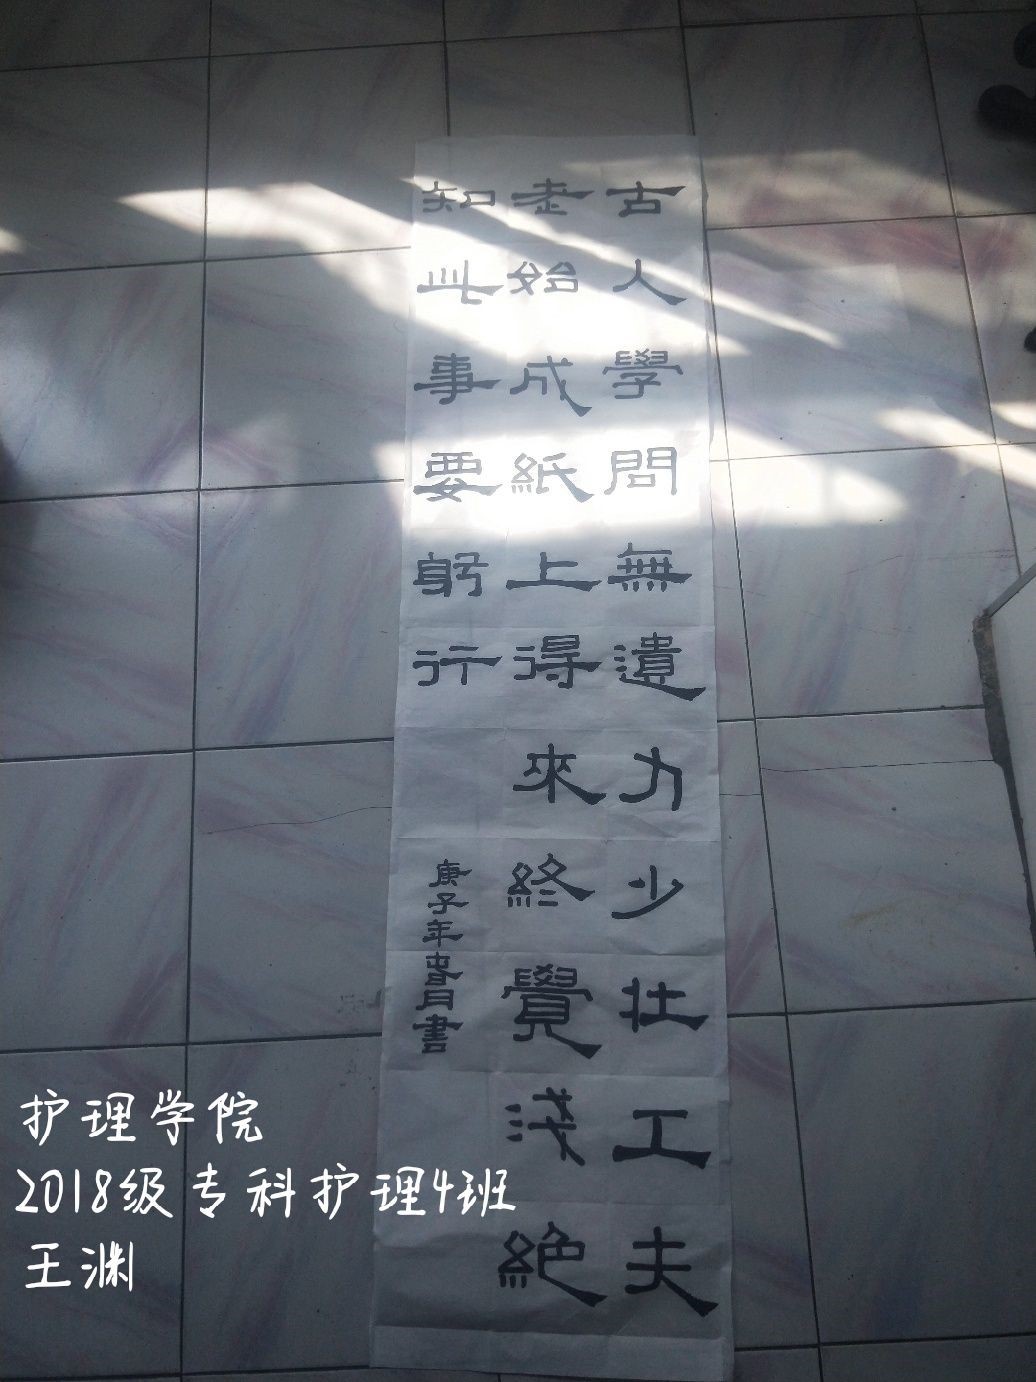 古人學問無遺力少壯工夫
老始成紙上得來終覺淺絕
知此事要躬行
庚子年春月書
护理学院
2018级专科护理4班
王渊